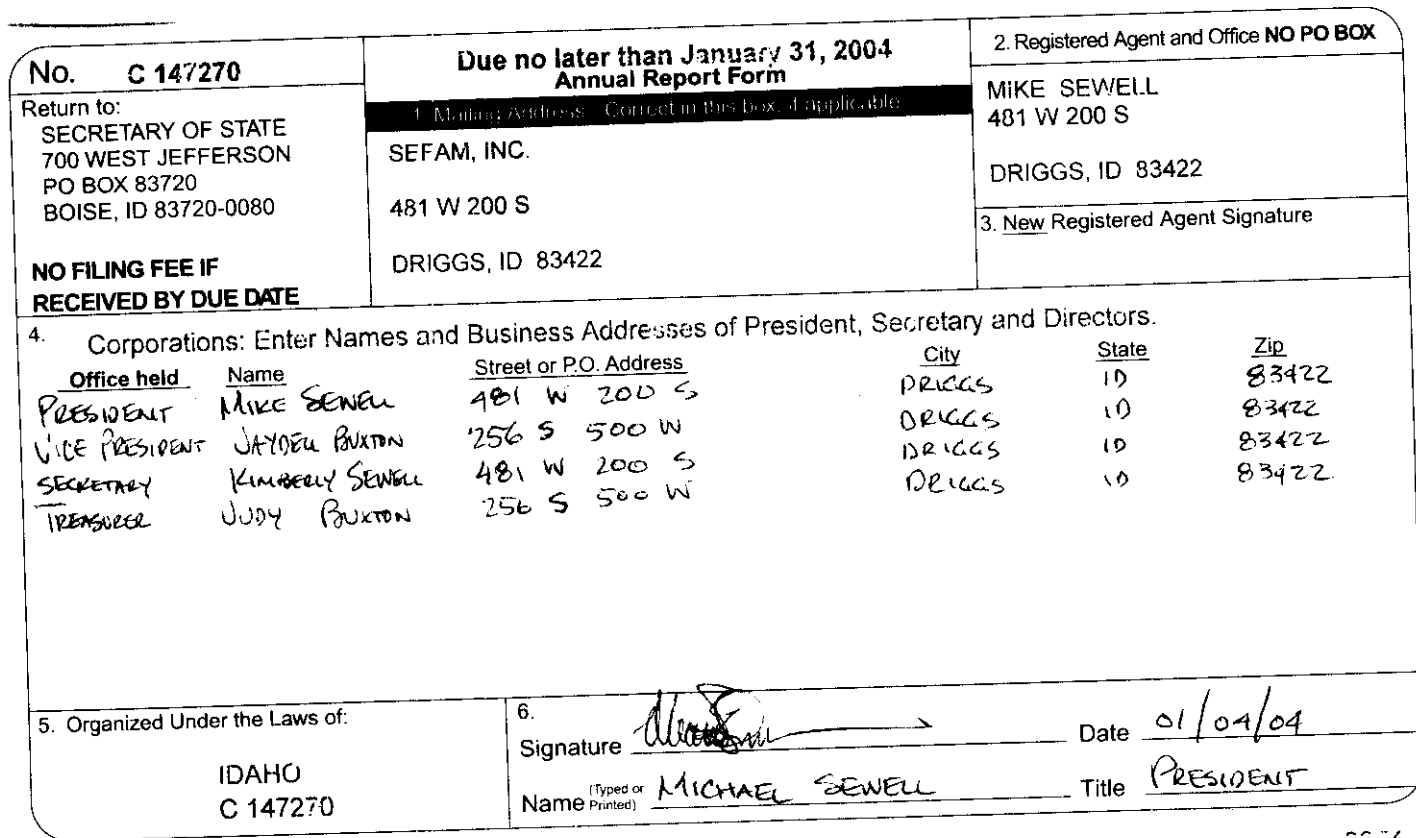 No. C 147270
Return to:
SECRETARY OF STATE
700 WEST JEFFERSON
PO BOX 83720
BOISE, ID 83720-0080
NO FILING FEE IF
RECEIVED BY DUE DATE
Due no later than January 31, 2004
Annual Report Form
1. Mailing Address: Correct in this box, if applicable
SEFAM, INC.
481 W 200 S
DRIGGS, ID 83422
2. Registered Agent and Office NO PO BOX
MIKE SEWELL
481 W 200 S
DRIGGS, ID 83422
3. New Registered Agent Signature
4. Corporations: Enter Names and Business Addresses of President, Secretary and Directors.
Office held Name Street or P.O. Address City State Zip
PRESIDENT MIKE SEWELL 481 W 200 S DRIGGS ID 83422
VICE PRESIDENT JAYDELL BUXTON 256 S 500 W DRIGGS ID 83422
SECRETARY KIMBERLY SEWELL 481 W 200 S DRIGGS ID 83422
TREASURER JUDY BUXTON 256 S 500 W DRIGGS ID 83422
5. Organized Under the Laws of:
IDAHO
C 147270
6.
Signature Date 01/04/04
Name (Typed or Printed) MICHAEL SEWELL Title PRESIDENT